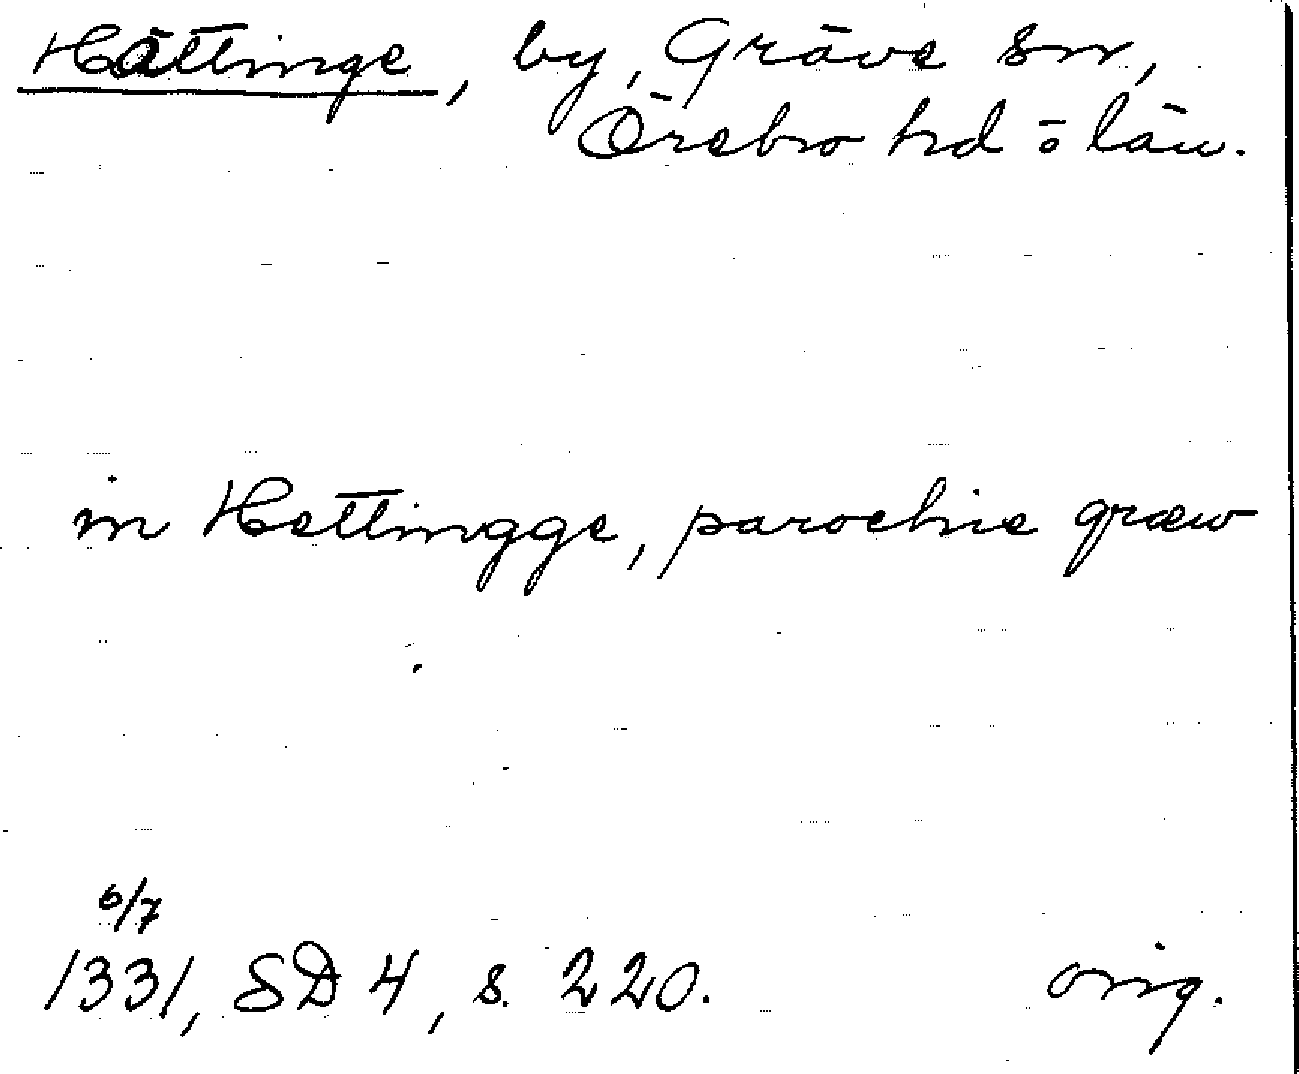 Hättinge, by, Gräve sn,
Örebro hd o län.
in Hettingge, parochie græw
6/7
1331, SD 4, s. 220. orig.